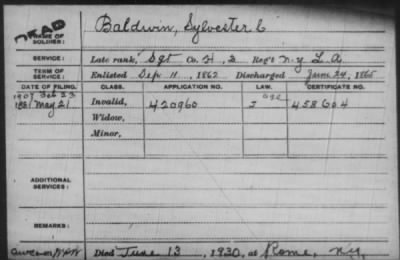 DEAD
NAME OF SOLDIER: Baldwin, Sylvester C
SERVICE: Late rank, Sgt Co. H, 2 Reg't N-Y L. A
TERM OF SERVICE: Enlisted Sep 11, 1862 Discharged June 24, 1865
DATE OF FILING. CLASS. APPLICATION NO. LAW. CERTIFICATE NO.
1907 Feb 23 age
1881 May 21 Invalid, 420960 J 458604
Widow,
Minor,
ADDITIONAL SERVICES:
REMARKS:
Died June 13, 1930, at Rome, N.Y.